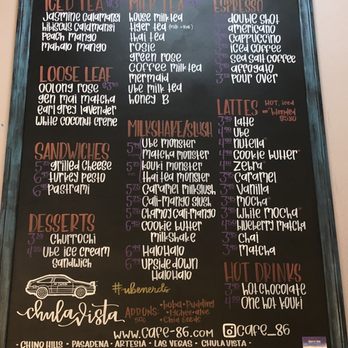 ICED TEA
Jasmine Calamansi
Hibiscus Calamansi
Peach Mango
Mahalo Mango
LOOSE LEAF
Oolong Rose
Gen Mai Matcha
Earl Grey Lavender
White Coconut Creme
SANDWICHES
Grilled Cheese
Turkey Pesto
Pastrami
DESSERTS
Churrochi
Ube Ice Cream
Sandwich
Chula Vista
MILK TEA
House Milk Tea
Tiger Tea
Thai Tea
Rosie
Green Rose
Coffee Milk Tea
Mermaid
Ube Milk Tea
Honey B
MILKSHAKE/SLUSH
Ube Monster
Matcha Monster
Houji Monster
Thai Tea Monster
Caramel Milk Slush
Cali-Mango Slush
Chamoy Cali-Mango
Cookie Butter
Milkshake
HaloHalo
Upside Down
HaloHalo
#ubenerds
ADD ONS
ESPRESSO
Double Shot
Americano
Cappuccino
Iced Coffee
Sea Salt Coffee
Affogato
Pour Over
LATTES
Hot, Iced
or Blended
Latte
Ube
Nutella
Cookie Butter
Zebra
Caramel
Vanilla
Mocha
White Mocha
Blueberry Matcha
Chai
Matcha
HOT DRINKS
Hot Chocolate
One Hot Youri
www.cafe-86.com
cafe_86
• Chino Hills • Pasadena • Artesia • Las Vegas • Chula Vista •